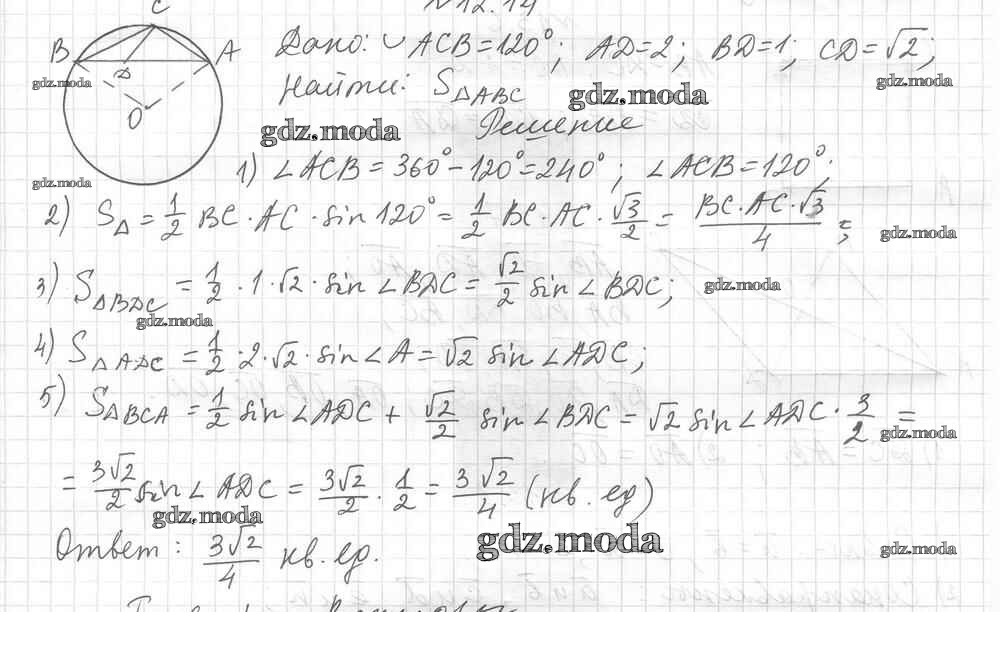 №12.14
C
B
A
D
O
Дано: ◡ACB = 120°; AD = 2; BD = 1; CD = √2;
Найти: S△ABC
Решение
1) ∠ACB = 360° - 120° = 240°; ∠ACB = 120°;
2) S△ = 1/2 BC · AC · sin 120° = 1/2 BC · AC · √3/2 = BC·AC·√3/4;
3) S△BDC = 1/2 · 1 · √2 · sin ∠BDC = √2/2 sin ∠BDC;
4) S△ADC = 1/2 · 2 · √2 · sin ∠A = √2 sin ∠ADC;
5) S△BCA = 1/2 sin ∠ADC + √2/2 sin ∠BDC = √2 sin ∠ADC · 3/2 =
= 3√2/2 sin ∠ADC = 3√2/2 · 1/2 = 3√2/4 (кв. ед)
Ответ: 3√2/4 кв. ед.
gdz.moda
gdz.moda
gdz.moda
gdz.moda
gdz.moda
gdz.moda
gdz.moda
gdz.moda
gdz.moda
gdz.moda
gdz.moda
gdz.moda